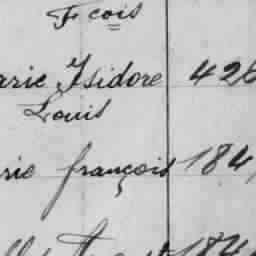 Fcois
arie Isidore 426
Louis
rie françois 184